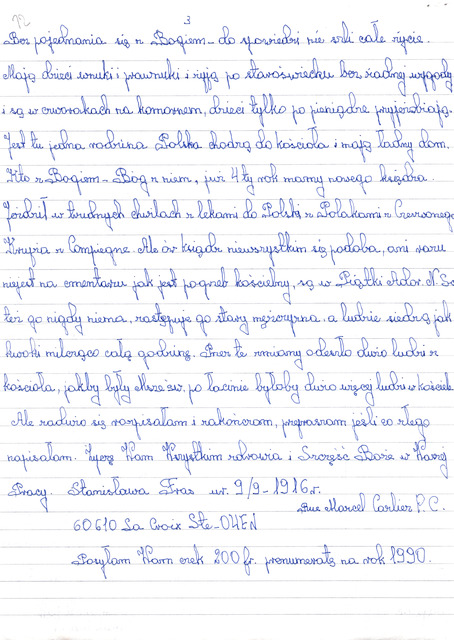 12
3
Bez pojednania się z Bogiem – do spowiedzi nie szli całe życie.
Mają dzieci wnuki i prawnuki i żyją po staroświecku bez żadnej wygody
i są w czworakach na komornem, dzieci tylko po pieniądze przyjeżdżają.
Jest tu jedna rodzina Polska chodzą do kościoła i mają ładny dom.
Kto z Bogiem – Bóg z niem, już 4ty rok mamy nowego księdza.
Jeździł w trudnych chwilach z lekami do Polski z Polakami z Czerwonego
Krzyża z Compiegne. Ale ów ksiądz niewszystkim się podoba, ani razu
niejest na cmentarzu jak jest pogrzeb kościelny, są w Piątki Ador. N. Sa
też go nigdy niema, zastępuje go stary mężczyzna. a ludzie siedzą jak
kwoki milcząco całą godzinę. Przez te zmiany odeszło dużo ludzi z
kościoła, jakby były Msze św. po łacinie byłoby dużo więcej ludzi w kościele
Ale zadużo się rozpisałam i zakończam, przepraszam jeśli co złego
napisałam. Życzę Wam Wszystkim zdrowia i Szczęść Boże w Waszej
Pracy. Stanisława Fras ur. 9/9 – 1916 r.
Rue Marcel Carlier P. C.
60610 La Croix Ste – OUEN
Posyłam Wam czek 200 fr. prenumeratę na rok 1990.